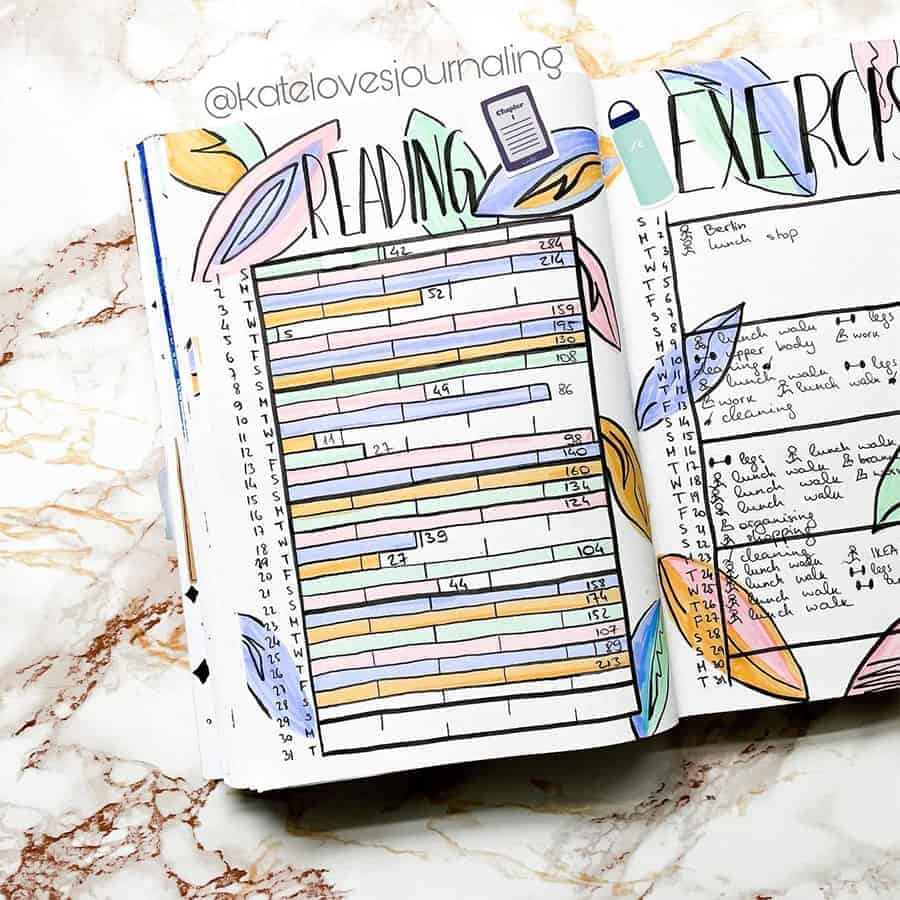 @katelovesjournaling
READING
Chapter
1
S 42
1 M 284
2 T 214
3 W 52
4 T 5
5 F 159
6 S 195
7 S 130
8 M 108
9 T 49
10 W 86
11 T 11
12 F 27
13 S 98
14 S 140
15 M 160
16 T 134
17 W 124
18 T 39
19 F 27
20 S 104
21 S 44
22 M 158
23 T 174
24 W 152
25 T 107
26 F 89
27 S 213
28 S
29 M
30 T
31
EXERCIS
S 1 Berlin
M 2 lunch stop
T 3
W 4
T 5
F 6
S 7
S 8 lunch walk legs
M 9 upper body work
T 10 cleaning
W 11 lunch walk legs
T 12 work lunch walk
F 13 cleaning
S 14
S 15
M 16 legs lunch walk
T 17 lunch walk
W 18 lunch walk
T 19 organising
F 20 shopping
S 21 cleaning IKEA
S 22 lunch walk
M 23 lunch walk legs
T 24 lunch walk
W 25
T 26
F 27
S 28
S 29
M 30
T 31